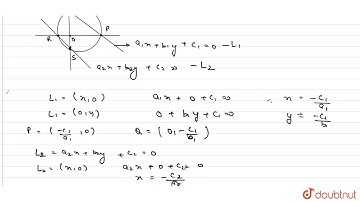 R O P
S
a₁x + b₁y + c₁ = 0 - L₁
a₂x + b₂y + c₂ = 0 - L₂
L₁ = (x,0) a₁x + 0 + c₁ = 0 ∴ x = -c₁/a₁
L₁ = (0,y) 0 + b₁y + c₁ = 0 y = -c₁/b₁
P = (-c₁/a₁, 0) Q = (0, -c₁/b₁)
L₂ = a₂x + b₂y + c₂ = 0
L₂ = (x,0) a₂x + 0 + c₂ = 0
x = -c₂/a₂
doubtnut